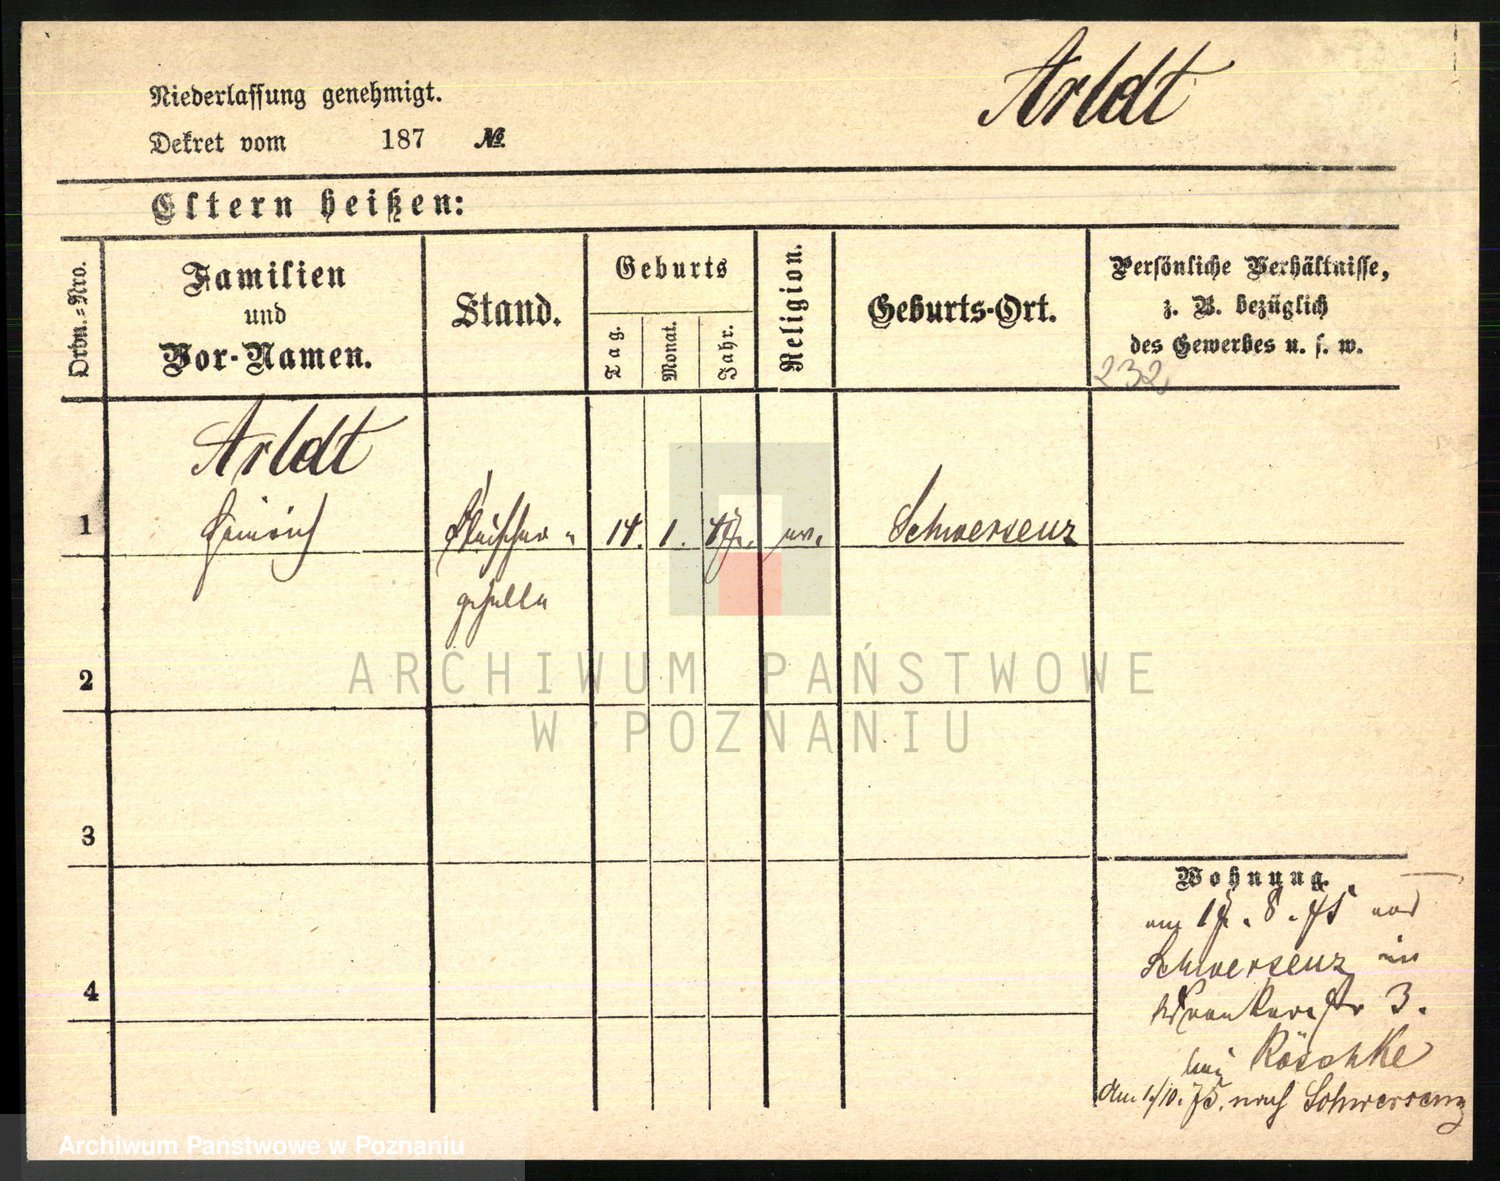 Arldt
Niederlassung genehmigt.
Dekret vom 187 №
Eltern heißen:
Ordn.-Nro.
Familien
und
Vor-Namen.
Stand.
Geburts
Tag.
Monat.
Jahr.
Religion.
Geburts-Ort.
Persönliche Verhältnisse,
z. B. bezüglich
des Gewerbes u. s. w.
232
Arldt
1 Heinrich Fleischer- 14. 1. ev. Schwersenz
geselle
2
3
4
Wohnung.
am 17. 8. 75 aus
Schwersenz in
3.
bei Röschke
Am 1/10. 75. nach Schwersenz
ARCHIWUM PAŃSTWOWE
W POZNANIU
Archiwum Państwowe w Poznaniu